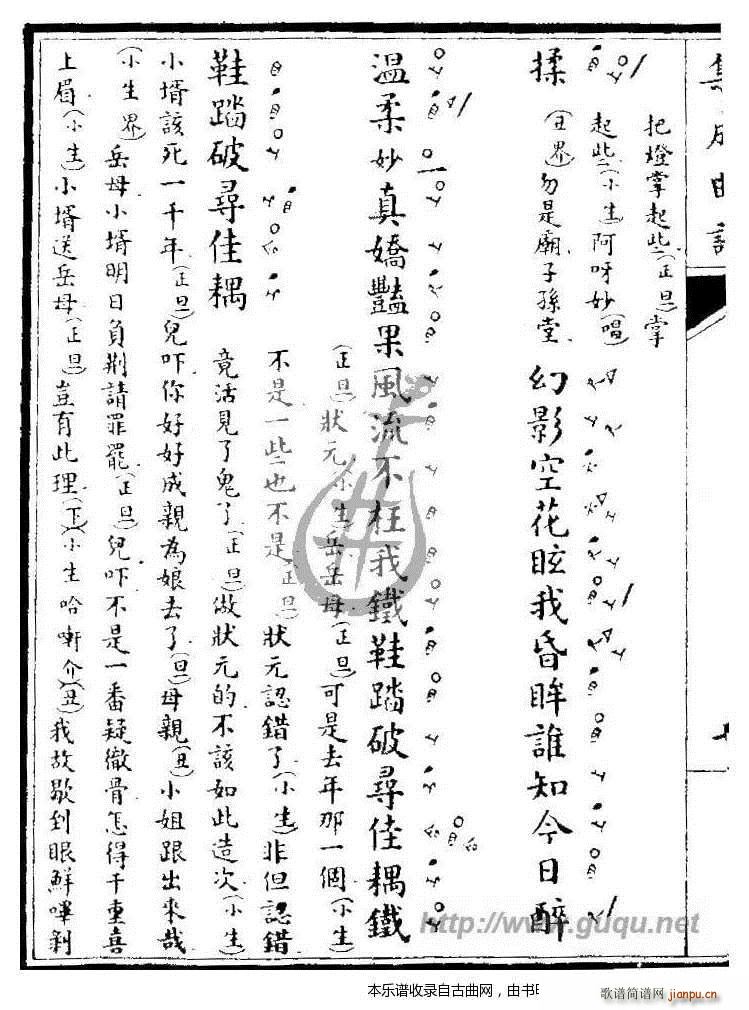 集成曲譜
把燈掌起些(正旦)掌
起些(小生)阿呀妙(唱)
揉(丑界)勿是廟子孫堂幻影空花眩我昏眸誰知今日醉
溫柔妙真嬌豔果風流不枉我鐵鞋踏破尋佳耦鐵
(正旦)狀元(小生)岳岳母(正旦)可是去年那一個(小生)
不是一些也不是(正旦)狀元認錯了(小生)非但認錯
鞋踏破尋佳耦竟活見了鬼了(正旦)做狀元的不該如此造次(小生)
小壻該死一千年(正旦)兒吓你好好成親為娘去了(旦)母親(丑)小姐跟出來哉
(小生界)岳母小壻明日負荆請罪罷(正旦)兒吓不是一番疑徹骨怎得千重喜
上眉(小生)小壻送岳母(正旦)豈有此理(下)(小生哈啣介)(丑)我故歇到眼鮮嗶剝
http://www.guqu.net
本乐谱收录自古曲网，由书
歌谱简谱网
jianpu.cn